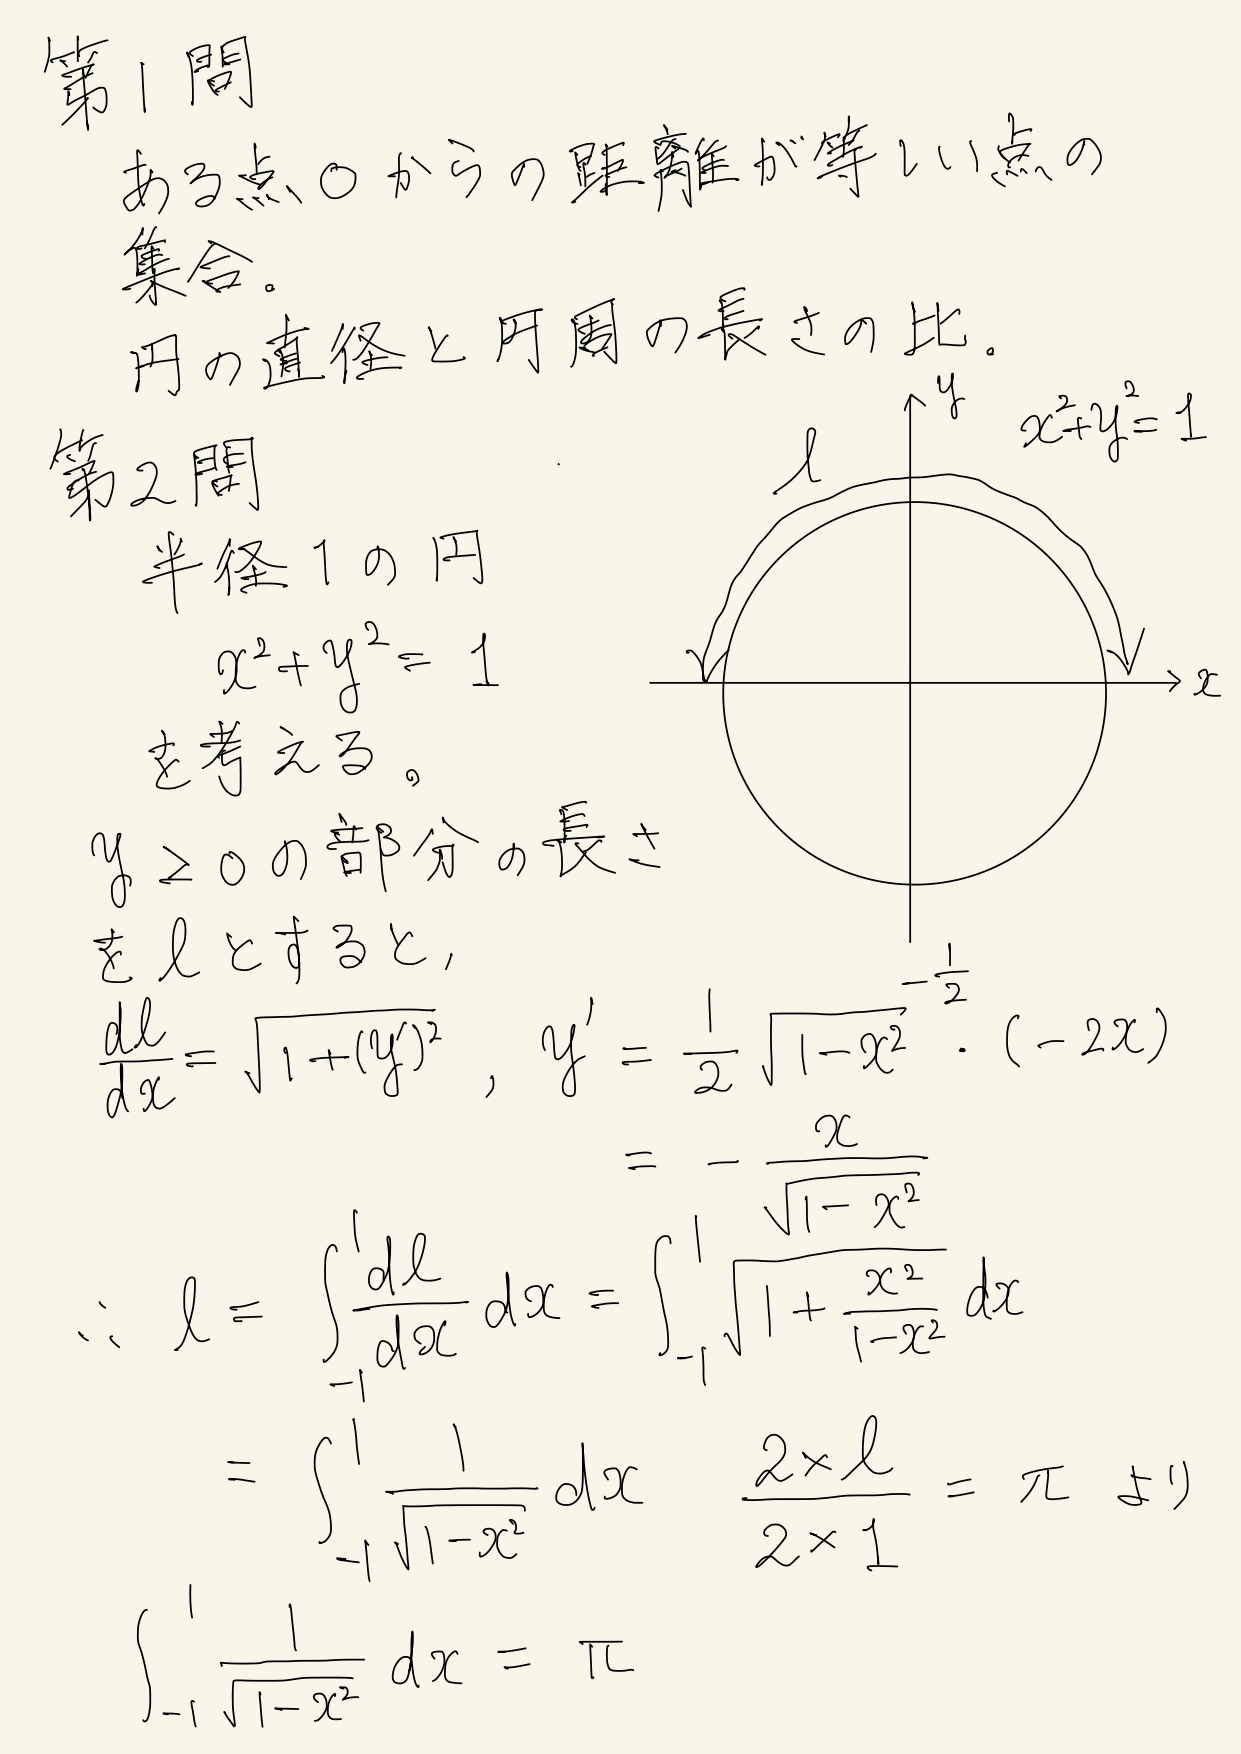 第1問
ある点Oからの距離が等しい点の
集合。
円の直径と円周の長さの比。
y
x²+y²=1
l
x
第2問
半径1の円
x²+y²=1
を考える。
y≥0の部分の長さ
をlとすると,
dl/dx = √(1+(y')²) , y' = 1/2 √(1-x²)^(-1/2) · (-2x)
= - x/√(1-x²)
∴ l = ∫_{-1}^{1} dl/dx dx = ∫_{-1}^{1} √(1 + x²/(1-x²)) dx
= ∫_{-1}^{1} 1/√(1-x²) dx (2×l)/(2×1) = π より
∫_{-1}^{1} 1/√(1-x²) dx = π